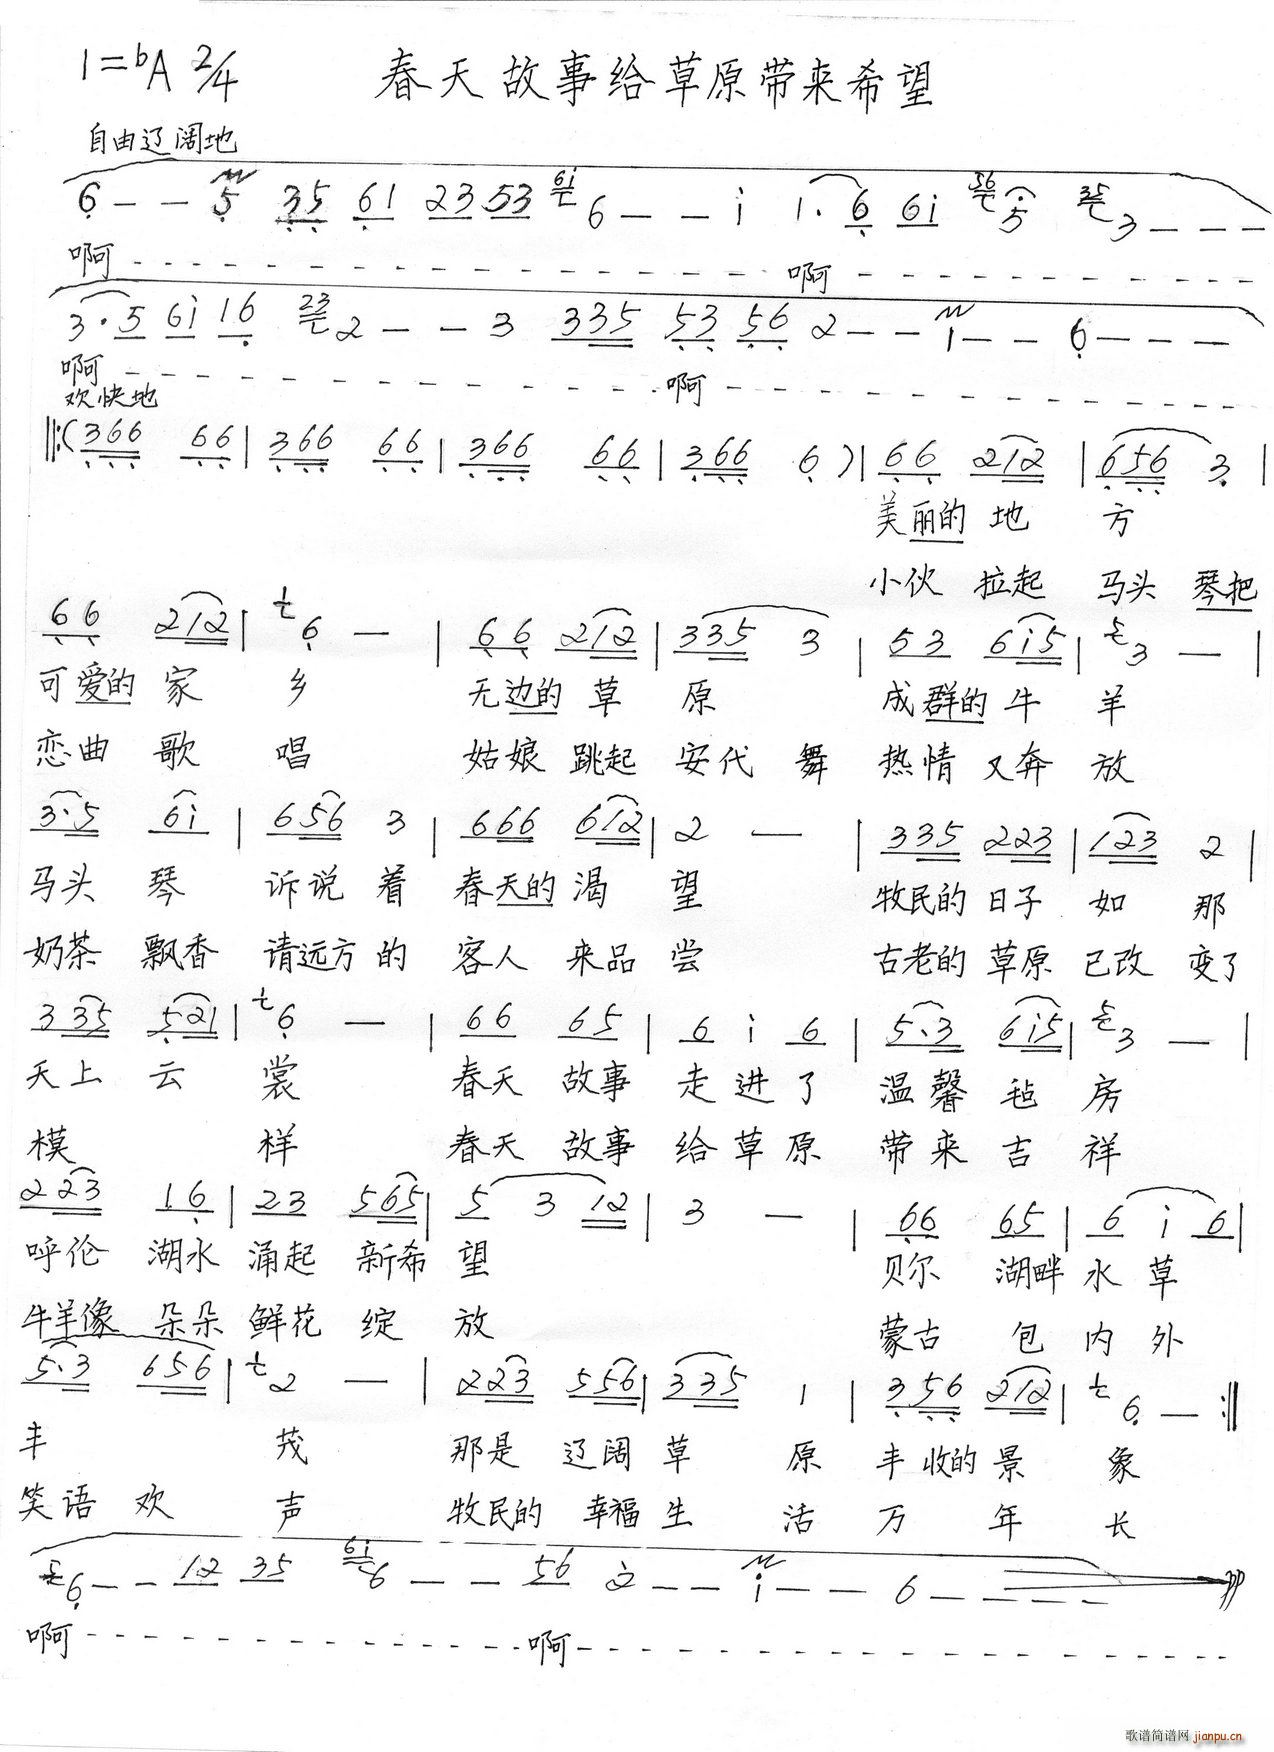 1=ᵇA 2/4 春天故事给草原带来希望
自由辽阔地
6̣ - - 5̣ 35 61 23 53 6 - - i 1. 6 6i 5 3 - - -
啊 啊
3.5 6i 16 2 - - 3 335 53 56 2 - - 1 - - 6 - - -
啊 啊
欢快地
‖:(366 66 | 366 66 | 366 66 | 366 6) | 66 212 | 656 3 |
美丽的 地 方
小伙 拉起 马头 琴把
66 212 | 6 - | 66 212 | 335 3 | 53 6i5 | 3 - |
可爱的 家 乡 无边的 草 原 成群的 牛 羊
恋曲 歌 唱 姑娘 跳起 安代 舞 热情 又奔 放
3.5 6i | 656 3 | 666 612 | 2 - | 335 223 | 123 2 |
马头 琴 诉说 着 春天的 渴 望 牧民的 日子 如 那
奶茶 飘香 请远方 的 客人 来品 尝 古老的 草原 已改 变了
335 521 | 6 - | 66 65 | 6 i 6 | 5.3 6i5 | 3 - |
天上 云 裳 春天 故事 走进了 温馨 毡 房
模 样 春天 故事 给草原 带来 吉 祥
223 1.6 | 23 565 | 5 3 12 | 3 - | 66 65 | 6 i 6 |
呼伦 湖水 涌起 新希 望 贝尔 湖畔 水草
牛羊像 朵朵 鲜花 绽 放 蒙古 包 内外
5.3 656 | 2 - | 223 556 | 335 1 | 356 212 | 6 - :‖
丰 茂 那是 辽阔 草 原 丰收的 景 象
笑语 欢 声 牧民的 幸福 生 活 万 年 长
6 - - 12 35 6 - - 56 2 - - i - - 6 - - - - pp
啊 啊
歌谱简谱网 jianpu.cn